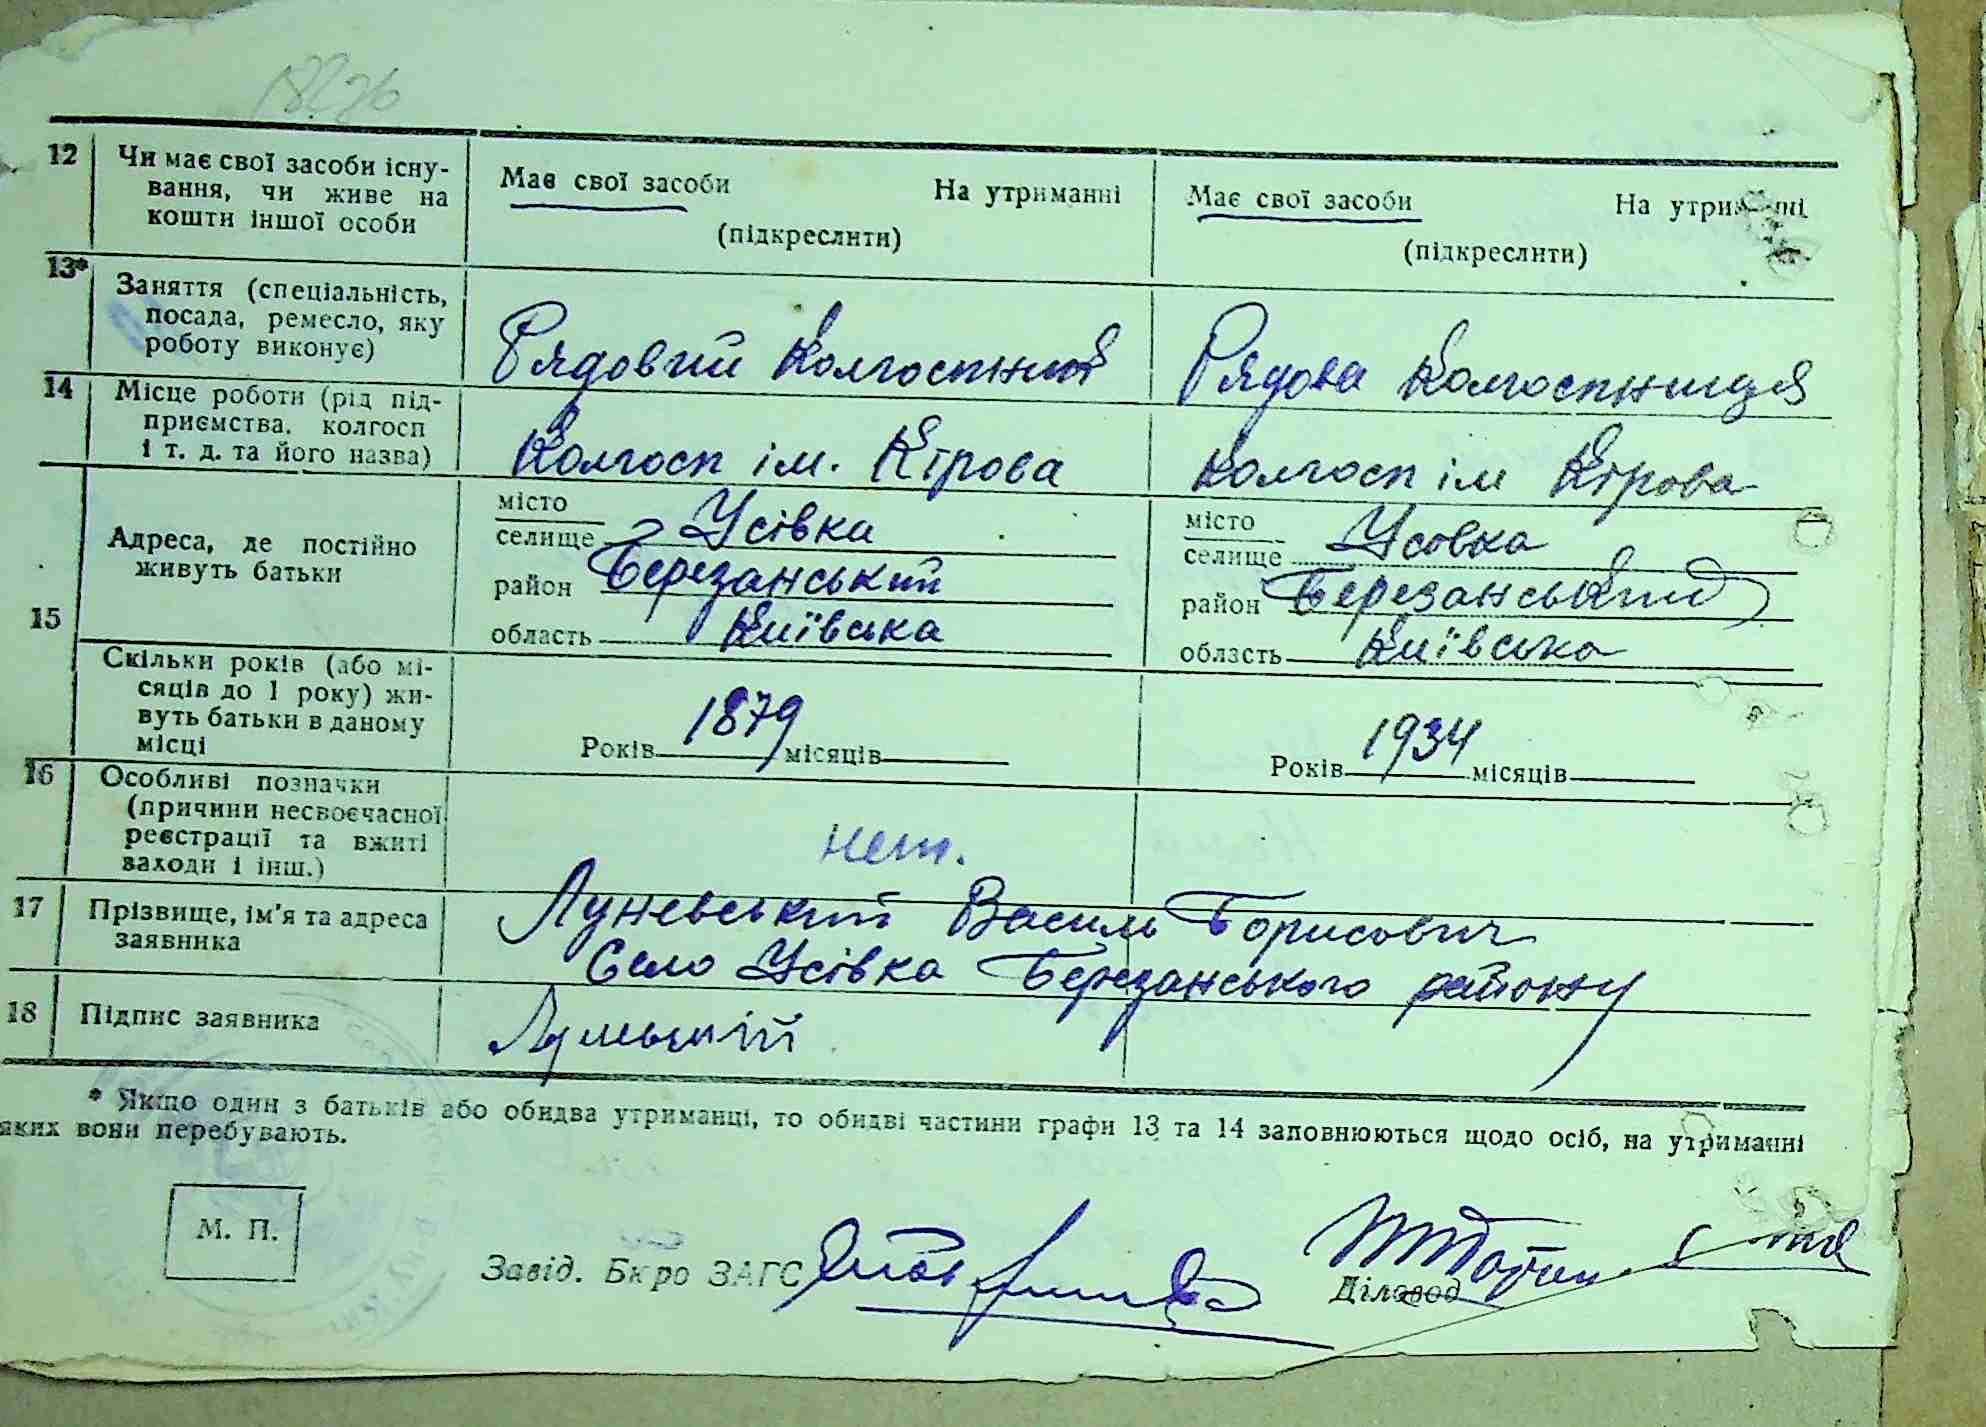 12 Чи має свої засоби існу-
вання, чи живе на
кошти іншої особи
Має свої засоби На утриманні
(підкреслити)
Має свої засоби На утриманні
(підкреслити)
13* Заняття (спеціальність,
посада, ремесло, яку
роботу виконує)
Рядовий Колгоспник
Рядова Колгоспниця
14 Місце роботи (рід під-
приємства, колгосп
і т. д. та його назва)
Колгосп ім. Кірова
Колгосп ім Кірова
15 Адреса, де постійно
живуть батьки
місто
селище Усівка
район Березанський
область Київська
місто
селище Усовка
район Березанський
область Київська
Скільки років (або мі-
сяців до 1 року) жи-
вуть батьки в даному
місці
Років 1879 місяців
Років 1934 місяців
16 Особливі позначки
(причини несвоєчасної
реєстрації та вжиті
заходи і інш.)
нет.
17 Прізвище, ім'я та адреса
заявника
Луневський Василь Борисович
Село Усівка Березанського району
18 Підпис заявника
* Якщо один з батьків або обидва утриманці, то обидві частини графи 13 та 14 заповнюються щодо осіб, на утриманні
яких вони перебувають.
М. П.
Завід. Бюро ЗАГС
Діловод